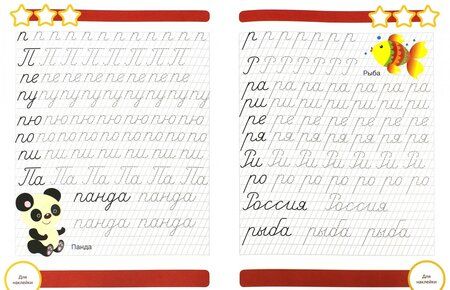 п п п п п п п п п п п
П П П П П П П П П
пе пе пе пе пе пе пе
пу пу пу пу пу пу пу
пю пю пю пю пю пю
по по по по по по по
пи пи пи пи пи пи пи
Па Па Па Па Па
панда панда
панда панда
Панда
Для
наклейки
р р р р р р р р
Рыба
Р Р Р Р Р Р Р
ра ра ра ра ра ра ра
ри ри ри ри ри ри ри
ре ре ре ре ре ре ре
ря ря ря ря ря ря ря
Ри Ри Ри Ри Ри Ри
ро ро ро ро ро ро ро
Россия Россия
рыба рыба рыба
Для
наклейки